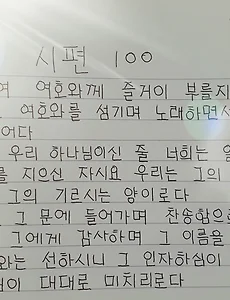 시편 100
여 여호와께 즐거이 부를지
여호와를 섬기며 노래하면서
어다
우리 하나님이신 줄 너희는 알
를 지으신 자시요 우리는 그의
그의 기르시는 양이로다
그 문에 들어가며 찬송함으로
그에게 감사하며 그 이름을
와는 선하시니 그 인자하심이
이 대대로 미치리로다